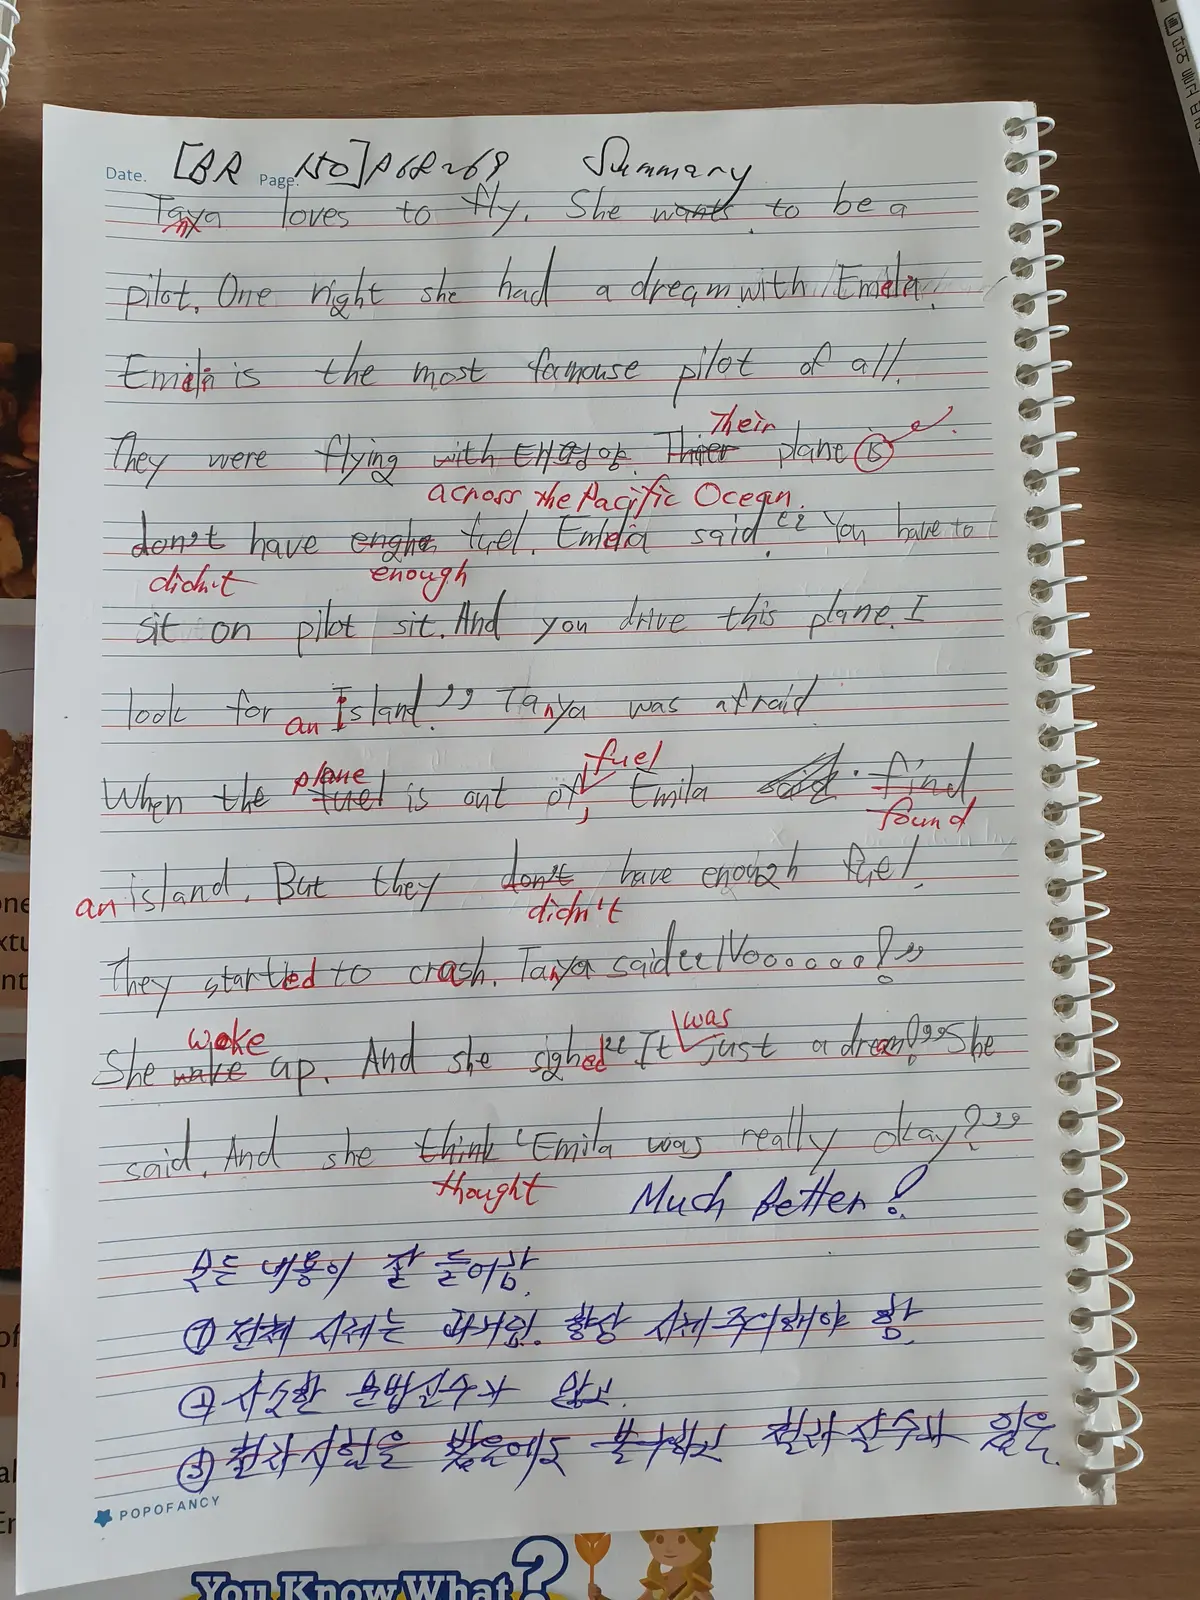 Date. [BR Page. NO] P68~69 Summary
Tanya loves to fly. She wants to be a
pilot. One night she had a dream with Emelia.
Emelia is the most famouse pilot of all.
Their
They were flying with 태평양. Thier plane is
across the Pacific Ocean.
don't have enghe fuel. Emelia said, "You have to
didn't enough
sit on pilot sit. And you drive this plane. I
look for an Island." Tanya was afraid.
plane fuel
When the fuel is out of, Emila said find
found
an island. But they don't have enough fuel.
didn't
They started to crash. Tanya said "Noooooo!"
woke was
She wake up. And she sighed "It just a dream!" She
said. And she think 'Emila was really okay?"
thought Much Better!
모든 내용이 잘 들어감.
① 전체 시제는 과거임. 항상 시제 주의해야 함.
② 사소한 문법실수가 많고.
③ 철자시험을 봤음에도 불구하고 철자 실수가 있음.
POPOFANCY
You Know What?